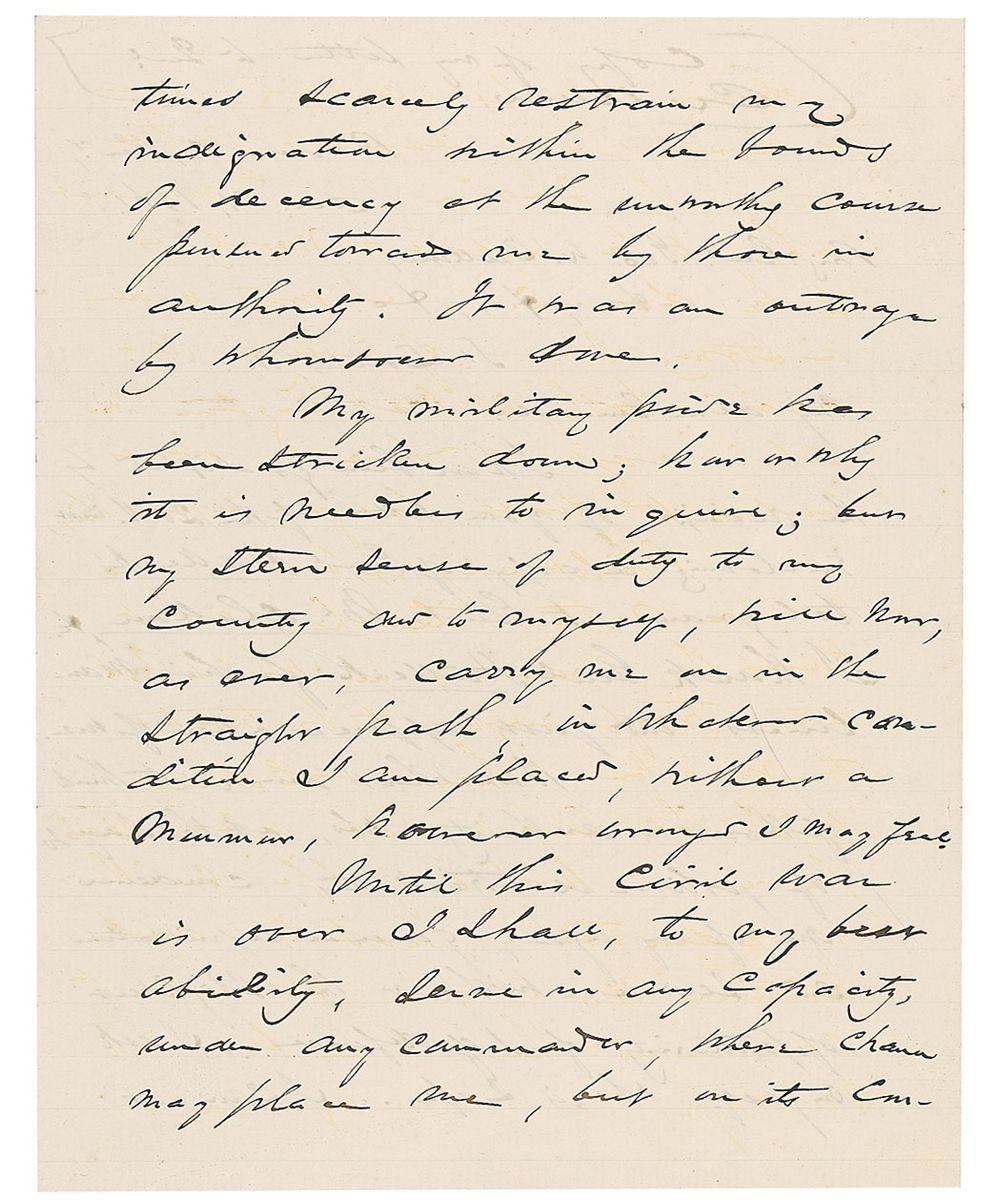 times scarcely restrain my
indignation within the bounds
of decency at the unworthy course
pursued toward me by those in
authority. It was an outrage
by whomsoever done.
My military pride has
been stricken down; how or why
it is needless to inquire; but
my stern sense of duty to my
Country and to myself, will now,
as ever, carry me on in the
straight path, in whatever con-
dition I am placed, without a
murmur, however wronged I may feel.
Until this Civil War
is over I shall, to my best
ability, serve in any capacity,
under any commander, where chance
may place me, but on its con-